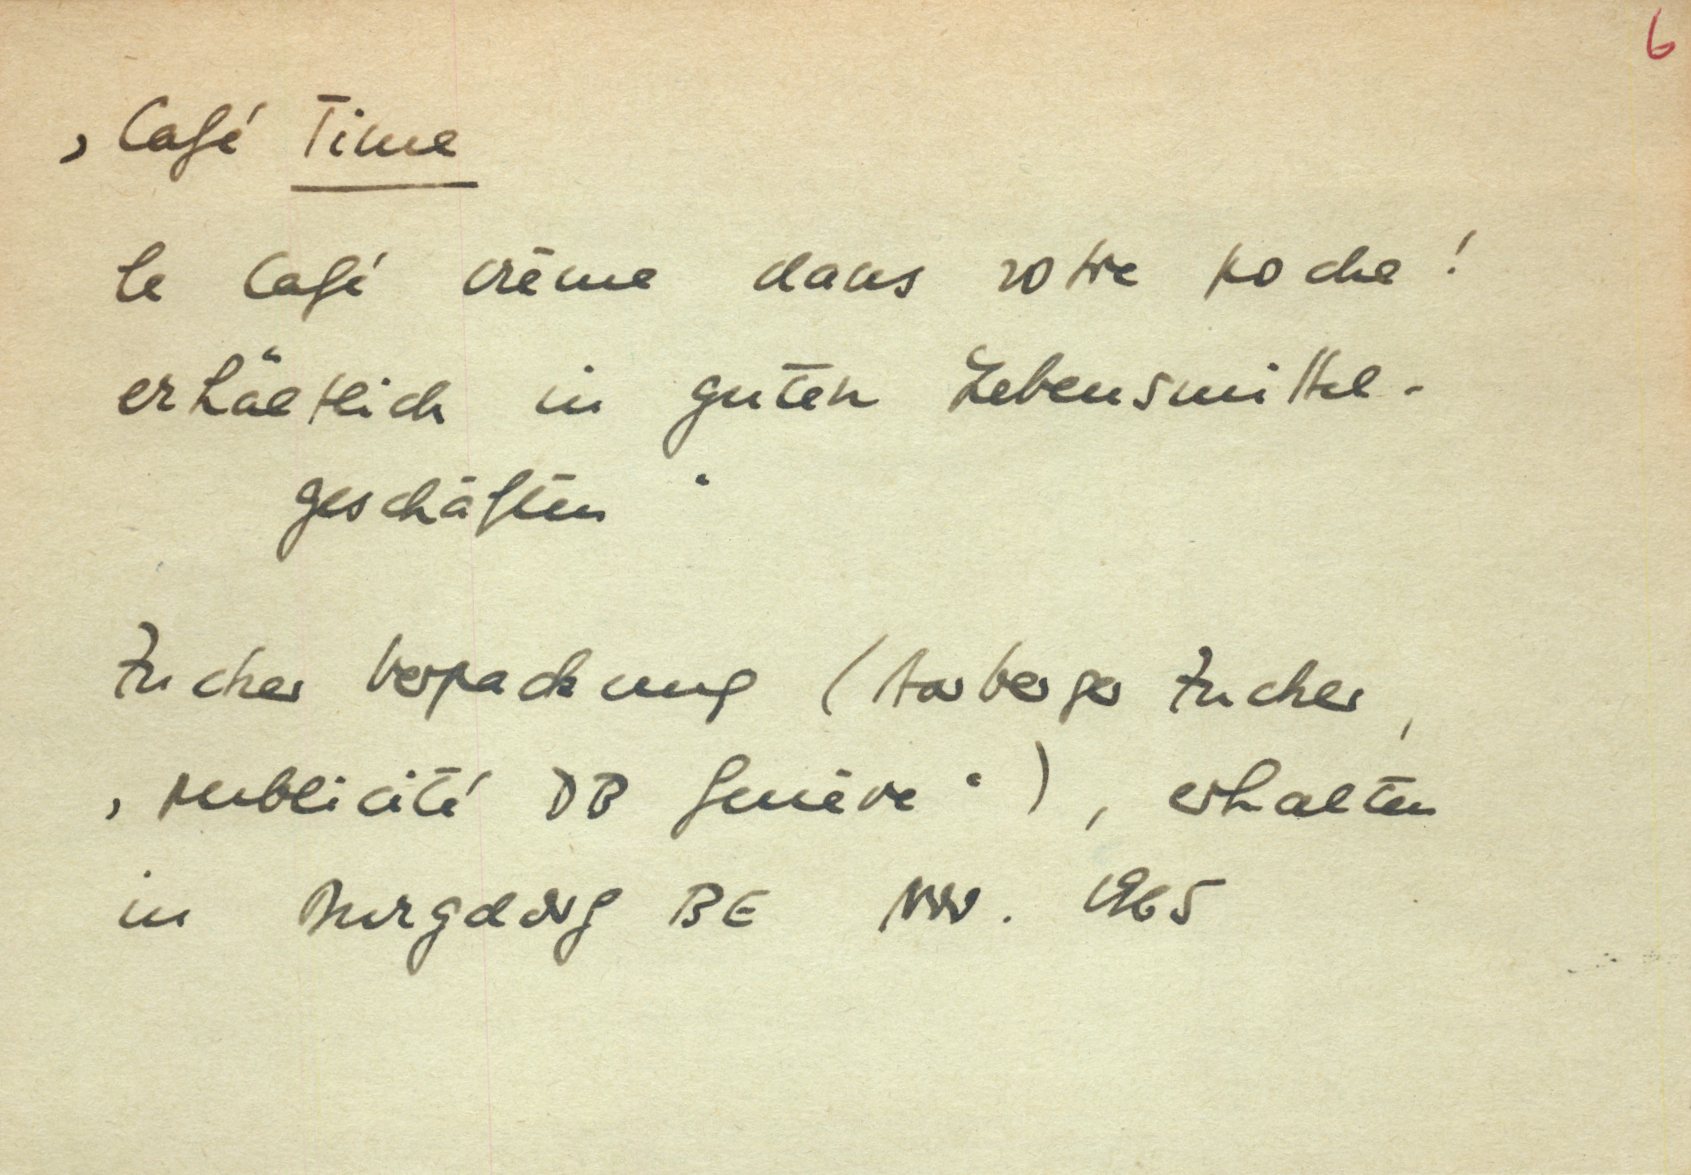 6
‚Café Time
le Café crème dans votre poche!
erhältlich in guten Lebensmittel-
geschäften‘
Zucker Verpackung (Aarberger Zucker,
‚publicité DB Genève‘), erhalten
in Burgdorf BE Nov. 1965